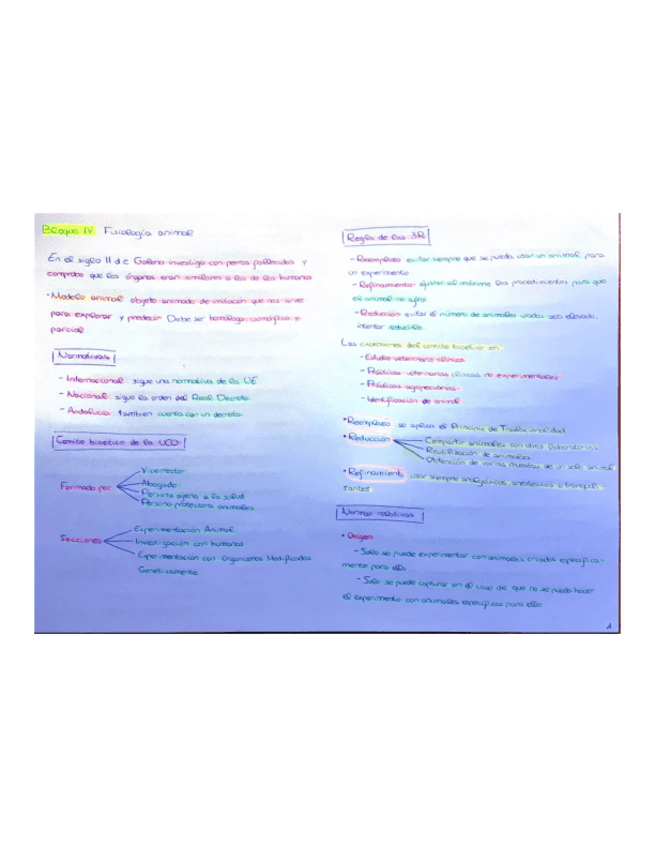 Bloque IV: Fisiología animal
En el siglo II d.c Galeno investigo con perros y
comprobo que los órganos eran similares a los de los humanos
· Modelo animal: objeto animado de imitación que nos sirve
para explorar y predecir. Debe ser homólogo, isomórfico y
parcial.
Normativas
- Internacional: sigue una normativa de la UE
- Nacional: sigue la orden del Real Decreto
- Andalucía: tambien cuenta con un decreto
Comite bioético de la UCO
Formado por
Vicerrector
Abogado
Persona ajena a la salud
Persona protectora animales
Secciones
Experimentación Animal
Investigación con humanos
Experimentación con Organismos Modificados
Genéticamente
Regla de las 3R
- Reemplazo: evitar siempre que se pueda usar un animal para
un experimento
- Refinamiento: ajustar al máximo los procedimientos para que
el animal no sufra
- Reducción: evitar el número de animales usados sea elevado,
intentar reducirlo
Las excepciones del comite bioético son:
- Estudio veterinario clínico
- Prácticas veterinarias clínicas no experimentales
- Prácticas agropecuarias
- Identificación de animal
· Reemplazo: se aplica el Principio de
· Reducción
Compartir animales con otros laboratorios
Reutilización de animales
Obtención de varias muestras de un solo animal
· Refinamient: usar siempre analgésicos, anestésicos o tranquili-
zantes
Normas
· Origen
- Solo se puede experimentar con animales criados específica-
mente para ello
- Solo se puede capturar en el caso de que no se pueda hacer
el experimento con animales específicos para ello
1